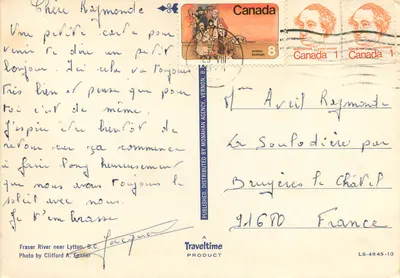 Chère Raymonde
Une petite carte pour
venir te dire un petit
bonjour. Ici cela va toujours
très bien et pense que pour
toi c'est de même.
J'espère être bientôt de
retour car ça commence
à faire long heureusement
que nous avons toujours le
soleil avec nous.
Je t'embrasse
Jacques
Fraser River near Lytton, B.C.
Photo by Clifford A. Fenner
PUBLISHED, DISTRIBUTED BY MONAHAN AGENCY, VERNON, B.C.
Canada
8
Canada 1
Canada 1
Mme Avril Raymonde
La Soulodière par
Bruyères le Châtel
91680 France
Traveltime
PRODUCT
LS-4645-10